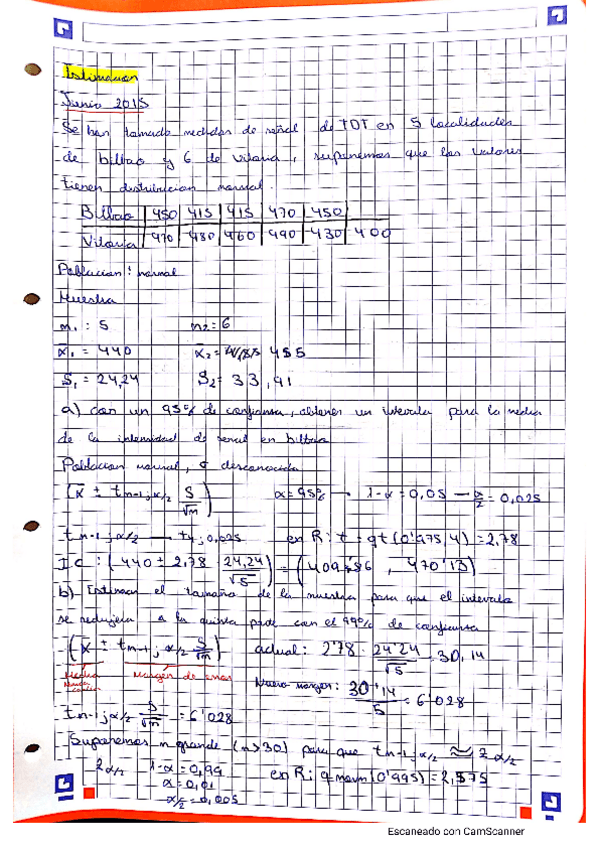 Estimacion
Junio 2015
Se han tomado medidas de señal de TDT en 5 localidades
de bilbao y 6 de vitoria, suponemos que los valores
tienen distribucion normal.
Bilbao 450 415 415 470 450
Vitoria 470 480 460 490 430 400
Poblacion: normal
Muestra
n₁ : 5 n₂ = 6
x̄₁ = 440 x̄₂ = 455
S₁ = 24,24 S₂ = 33,91
a) con un 95% de confianza, obtener un intervalo para la media
de la intensidad de señal en bilbao
Poblacion normal, σ desconocida
(x̄ ± tn-1;α/2 S/√n) α = 95% → 1-α = 0,05 — α/2 = 0,025
tn-1;α/2 — t4;0,025 en R: t = qt(0'975,4) = 2,78
IC : (440 ± 2,78 · 24,24/√5) = (409'86 , 470'13)
b) Estimar el tamaño de la muestra para que el intervalo
se redujera a la quinta parte con el 99% de confianza
(x̄ ± tn-1;α/2 S/√n) actual: 2'78 · 24'24/√5 = 30,14
Media Margen de error
Nuevo margen: 30'14/5 = 6'028
tn-1;α/2 S/√n = 6'028
Suponemos n grande (n>30) para que tn-1;α/2 ≈ zα/2
zα/2 1-α = 0,99 en R: qnorm(0'995) = 2,575
α = 0,01
α/2 = 0,005
Escaneado con CamScanner